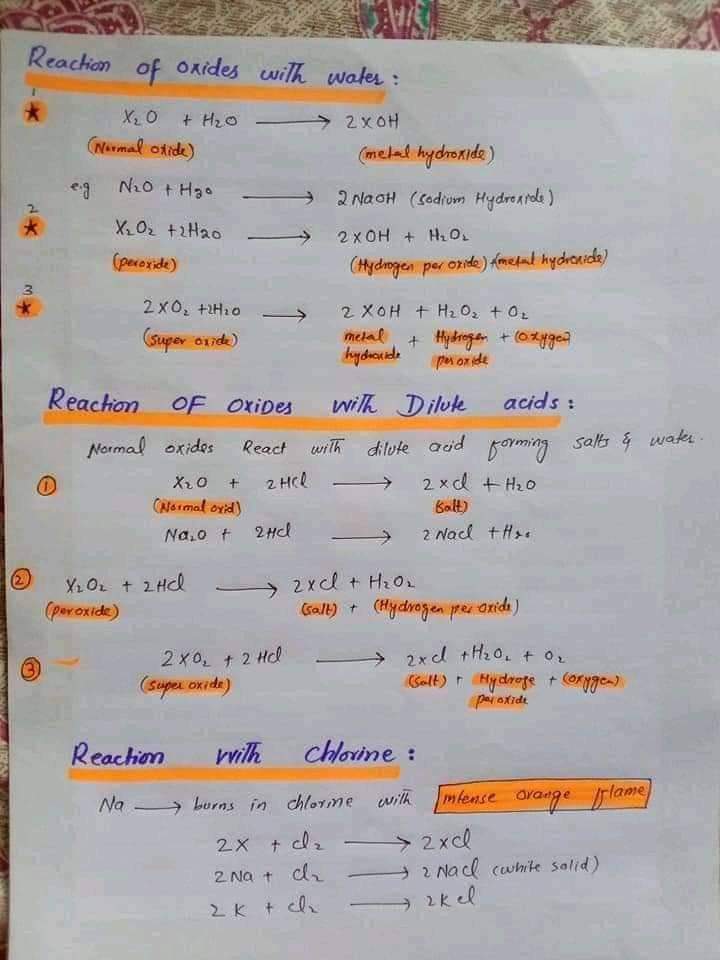 Reaction of oxides with water:
1
★ X₂O + H₂O ⟶ 2XOH
(Normal oxide) (metal hydroxide)
e.g N₂O + H₂O ⟶ 2NaOH (Sodium Hydroxide)
2
★ X₂O₂ + 2H₂O ⟶ 2XOH + H₂O₂
(peroxide) (Hydrogen per oxide) + (metal hydroxide)
3
★ 2XO₂ + 2H₂O ⟶ 2XOH + H₂O₂ + O₂
(super oxide) metal hydroxide + Hydrogen per oxide + (oxygen)
Reaction OF oxides with Dilute acids:
Normal oxides React with dilute acid forming salts & water.
① X₂O + 2HCl ⟶ 2xcl + H₂O
(Normal oxid) (salt)
Na₂O + 2HCl ⟶ 2Nacl + H₂O
② X₂O₂ + 2HCl ⟶ 2xcl + H₂O₂
(per oxide) (salt) + (Hydrogen per oxide)
③ 2XO₂ + 2HCl ⟶ 2xcl + H₂O₂ + O₂
(super oxide) (salt) + Hydroge per oxide + (oxygen)
Reaction with chlorine:
Na ⟶ burns in chlorine with intense orange flame
2X + cl₂ ⟶ 2xcl
2Na + cl₂ ⟶ 2Nacl (white solid)
2K + cl₂ ⟶ 2Kcl